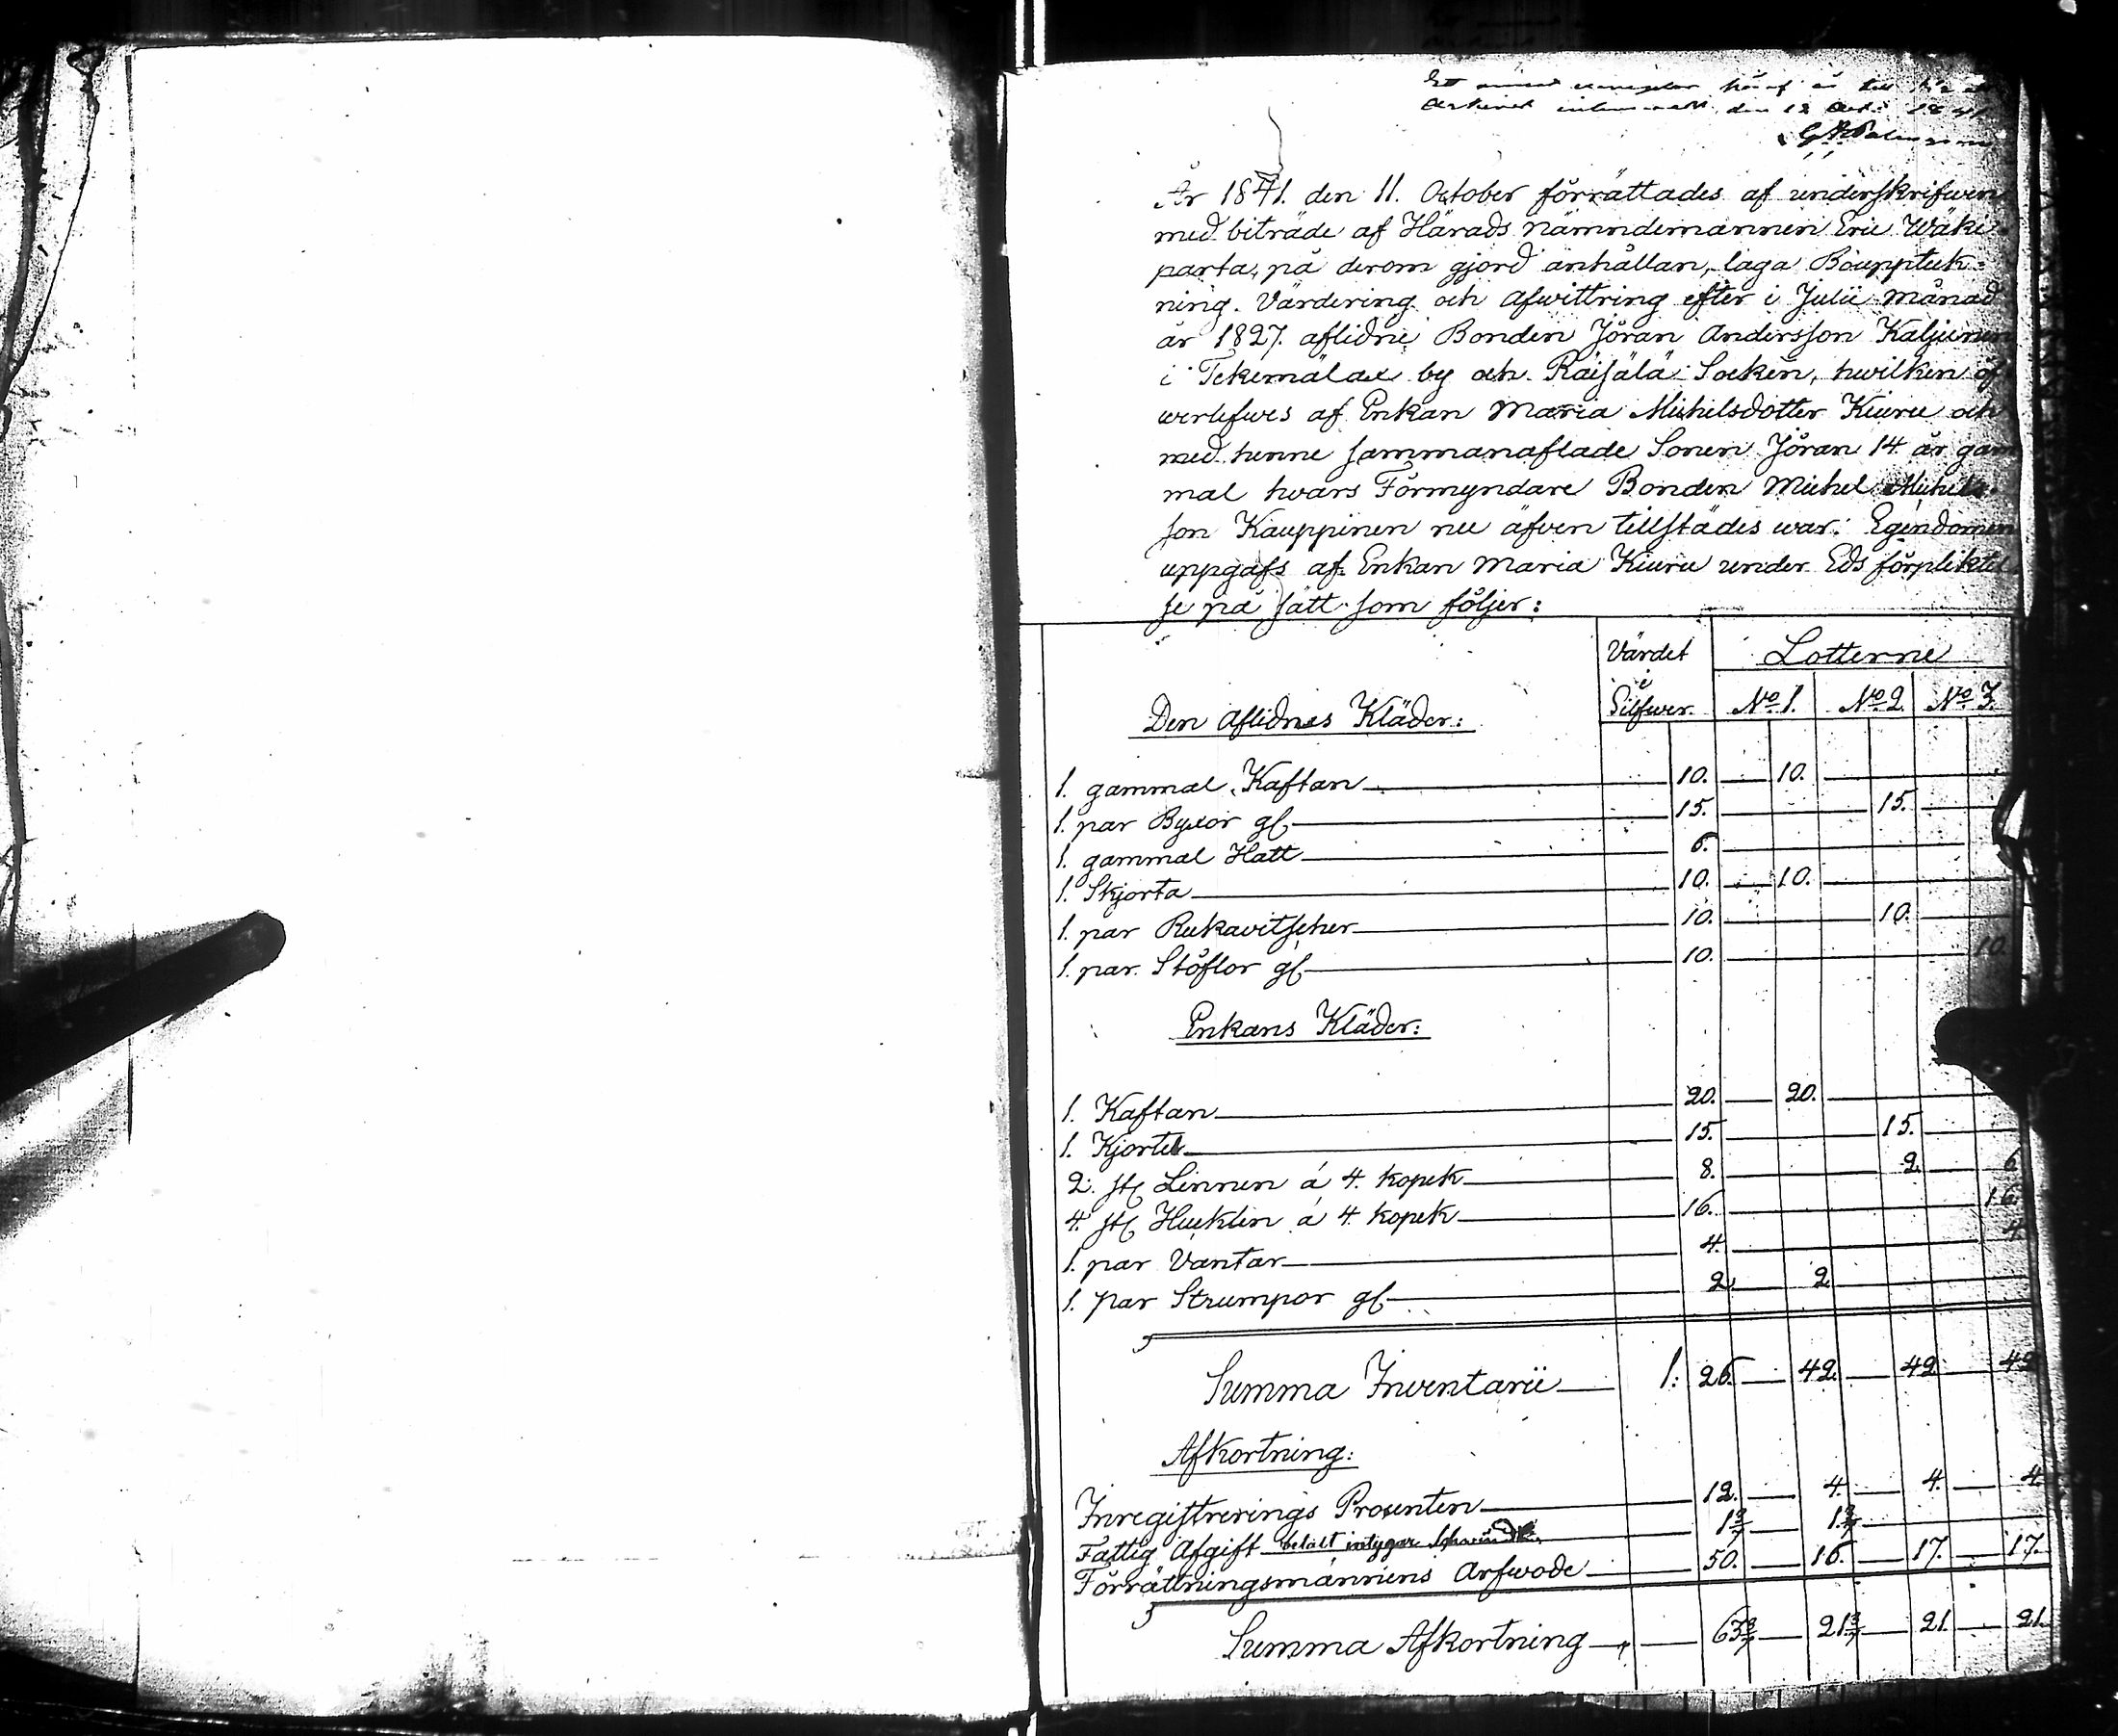 Ett annat exemplar häraf är till
den 12 Oct. 1841
År 1841. den 11. October förrättades af underskrifwen
med biträde af Härads nämndemannen Eric Wäki-
parta, på derom gjord anhållan, laga Bouppteck-
ning. Värdering och afwittring efter i Julii månad
år 1827. aflidne Bonden Jöran Andersson Kaljunen
i Tekemälax by och Räisälä Socken, hwilken öf
werlefwes af Enkan Maria Michelsdotter Kiuru och
med henne sammanaflade Sonen Jöran 14 år gam
mal hvars Förmyndare Bonden Michel Michels-
son Kauppinen nu äfven tillstädes war: Egendomen
uppgafs af Enkan Maria Kiuru under Eds förpliktel
se på sätt som följer:
Värdet i Silfwer. Lotterne
Den Aflidnes Kläder: No 1. No 2 No 3.
1. gammal Kaftan 10. 10.
1. par Byxor gl 15. 15.
1. gammal Hatt 6.
1. Skjorta 10. 10.
1. par Rukavitscher 10. 10.
1. par Stöflor gl 10. 10.
Enkans Kläder:
1. Kaftan 20. 20.
1. Kjortel 15. 15.
2. st Linnen á 4. kopek 8. 2. 6
4. st Hucklen á 4. kopek 16. 16.
1. par Vantar 4. 4.
1. par Strumpor gl 2. 2
Summa Inventarii 1: 26. 42. 42. 42
Afkortning:
Inregistrerings Procenten 12. 4. 4. 4
Fattig Afgift betalt intygar 1 3/7 1 3/7
Förrättningsmännens Arfwode 50. 16. 17. 17.
Summa Afkortning 63 3/7 21 3/7 21. 21.